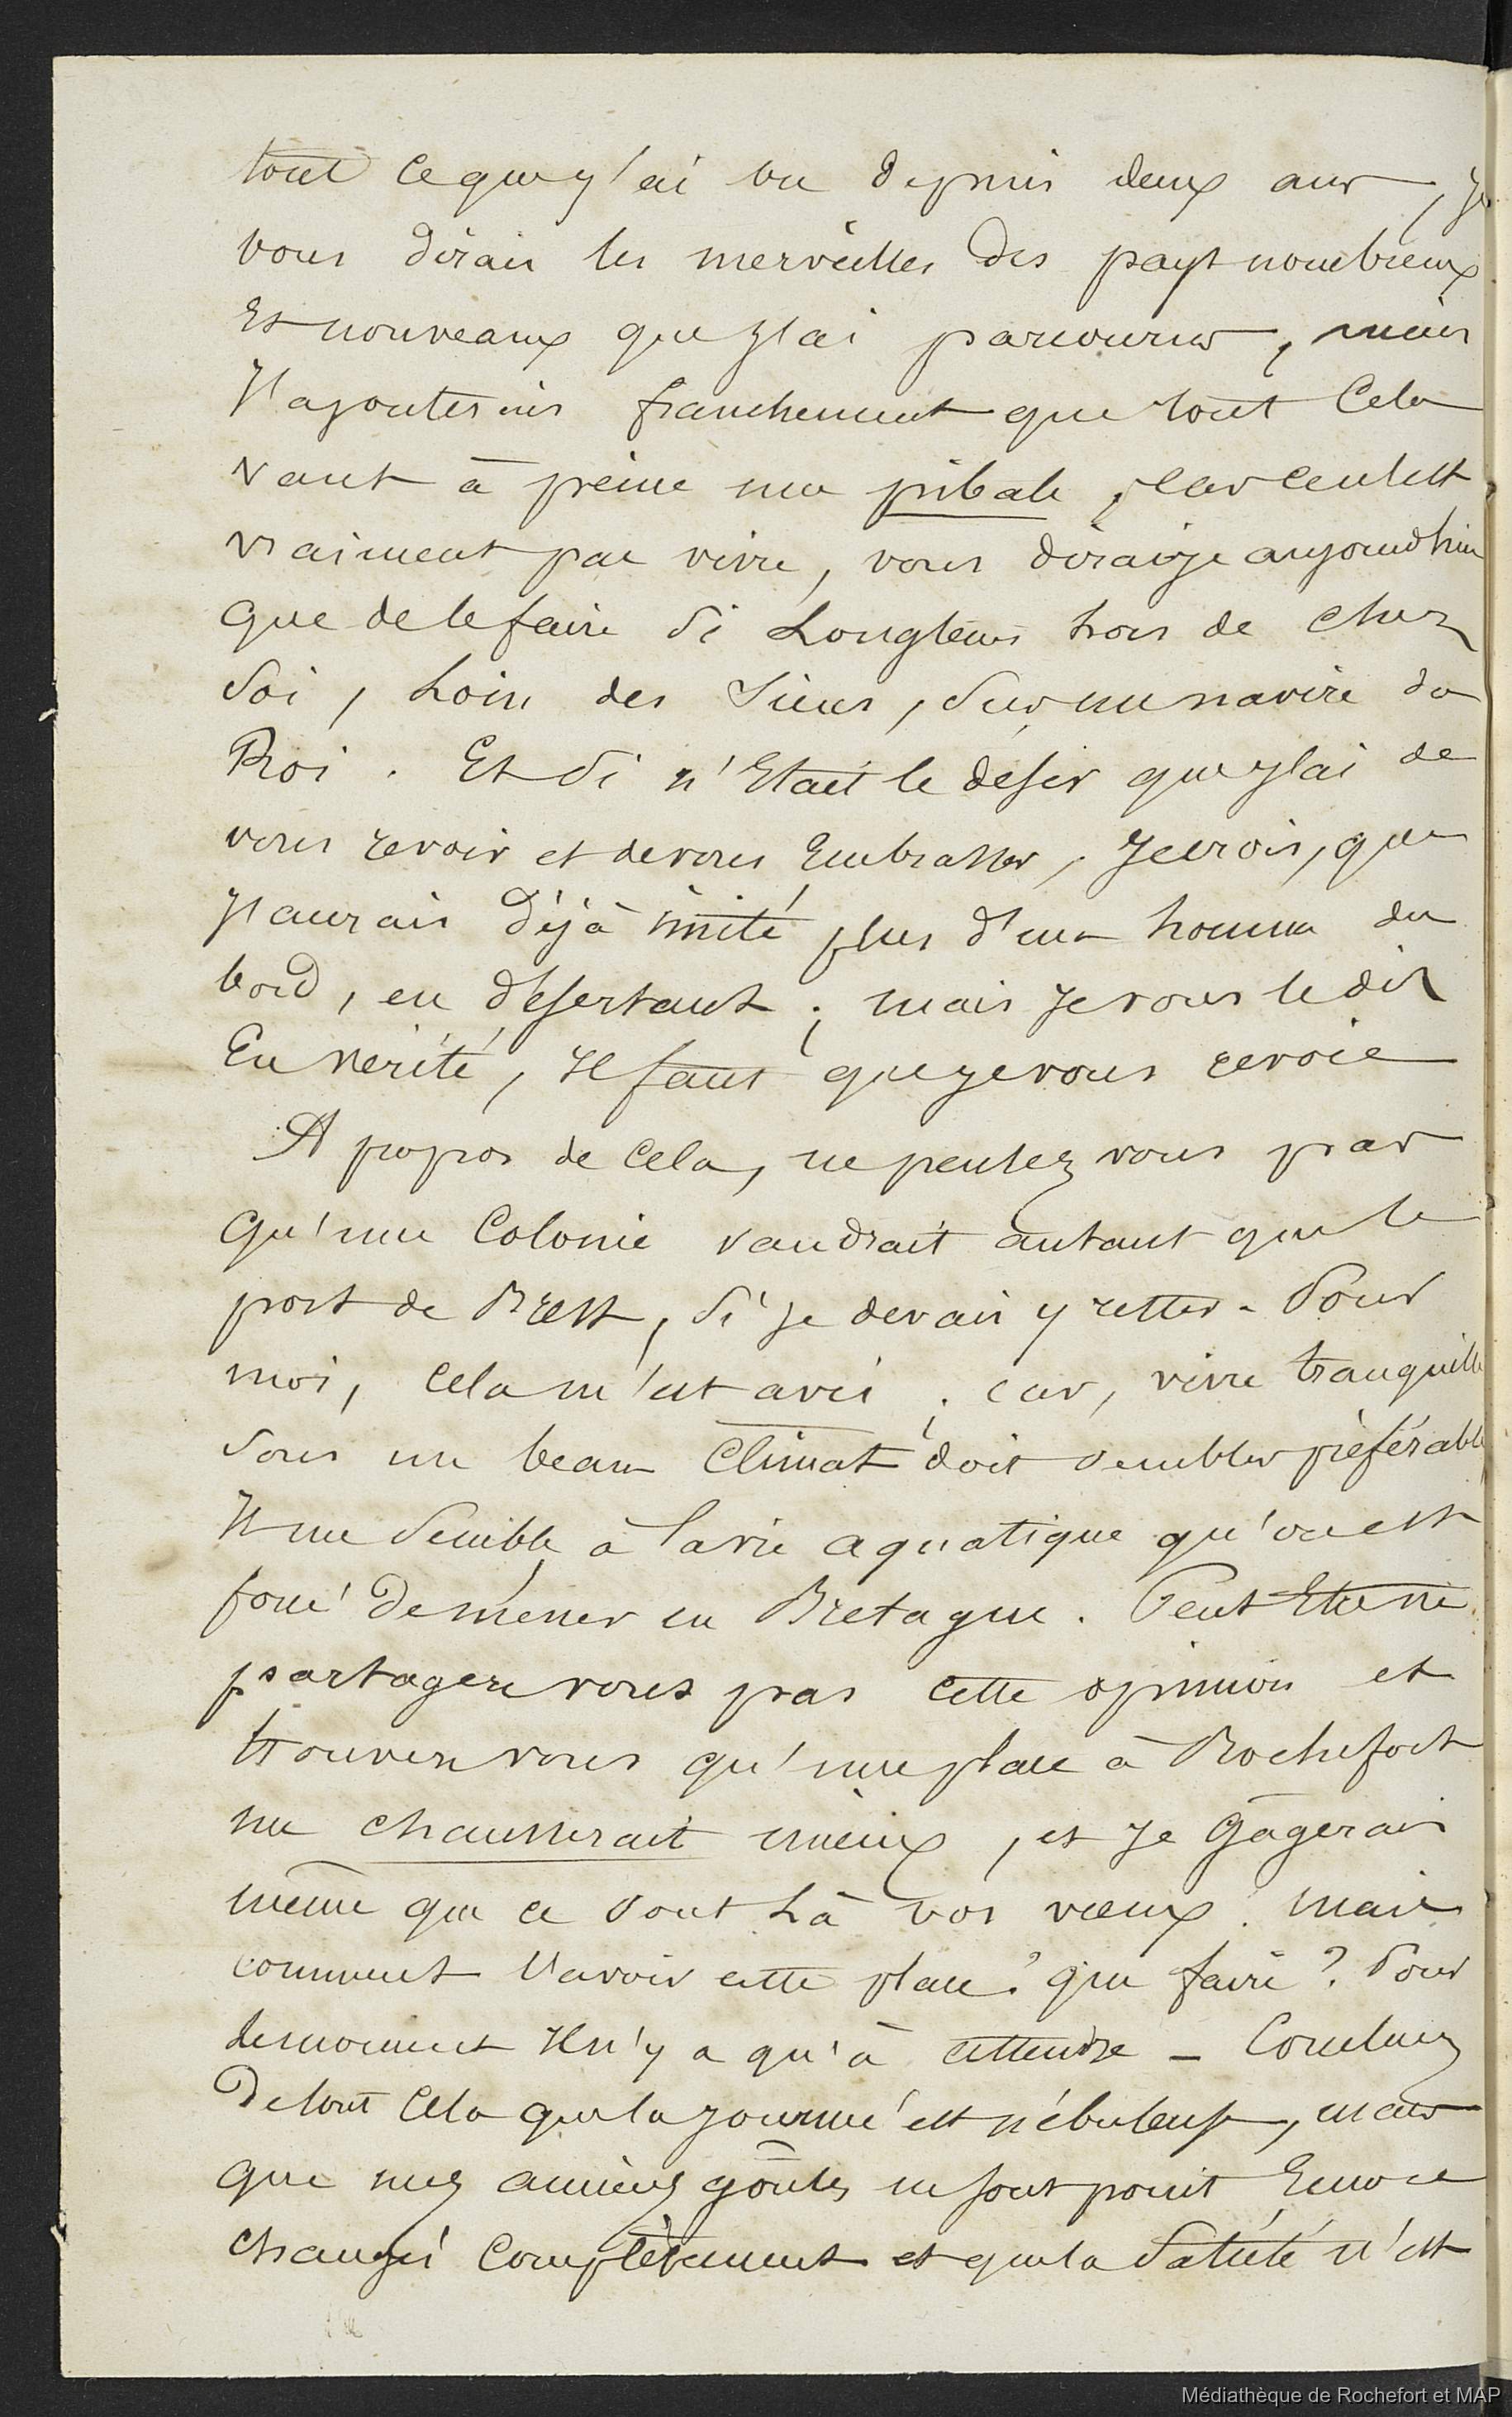 tout ce que j'ai vu depuis deux ans, je
vous dirais les merveilles des pays nombreux
Et nouveaux que j'ai parcourus, mais
J'ajouterais franchement que tout Cela
vaut à peine une pibale, car ce n'est
vraiment pas vivre, vous dirai-je aujourd'hui
que de le faire si Longtems hors de chez
Soi, Loin des Siens, sur un navire du
Roi. Et si n'Etait le désir que j'ai de
vous revoir et de vous Embrasser, Je crois, que
J'aurais Déjà imité plus d'un homme du
bord, en désertant; mais Je vous le dis
En vérité, Il faut que je vous revoie
A propos de Cela, ne pensez vous pas
Qu'une Colonie vaudrait autant que le
port de Brest, si je devais y rester - Pour
moi, Cela m'est avis; car, vivre tranquille
Sous un beau Climat doit sembler préférable
Il me Semble à la vie aquatique qu'on est
forcé De mener en Bretagne. Peut Etre ne
partagerez vous pas cette opinion et
trouverez vous qu'une place à Rochefort
me chausserait mieux, et Je Gagerais
même que ce sont Là vos vœux. Mais
comment l'avoir cette place? que faire? Pour
Le moment Il n'y a qu'à attendre - Concluez
De tout Cela que la journée est nébuleuse, mais
que mes anciens goûts ne sont point Encore
changés Complètement et que la Satiété n'est
Médiathèque de Rochefort et MAP